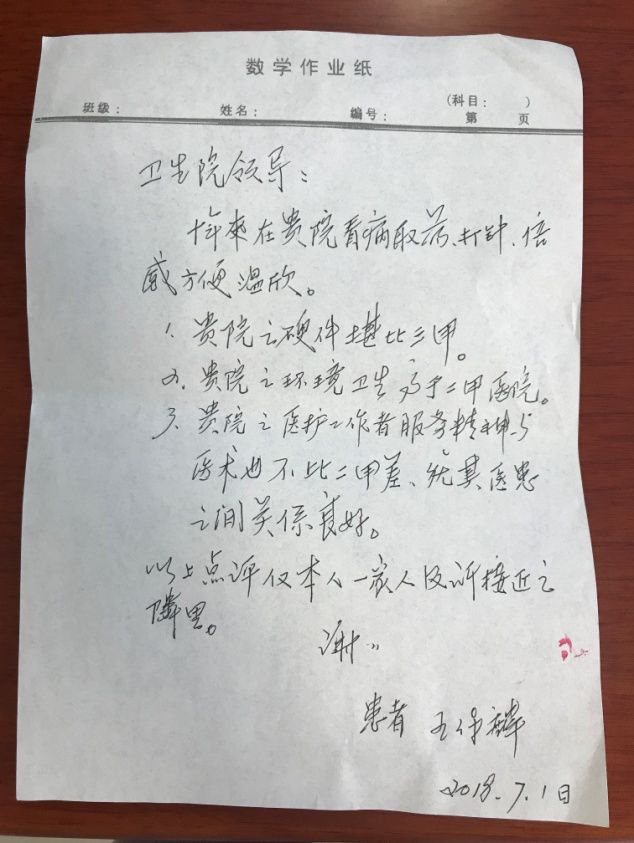 数学作业纸
班级：  姓名：  编号：  (科目：  )
第  页
卫生院领导：
十年来在贵院看病取药、打针、倍
感方便温欣。
1. 贵院之硬件堪比三甲。
2. 贵院之环境卫生高于二甲医院。
3. 贵院之医护工作者服务精神与
医术也不比二甲差、尤其医患
之间关系良好。
以上点评仅本人一家人及所接近之
隣里。
谢谢
患者 王保
2018.7.1日